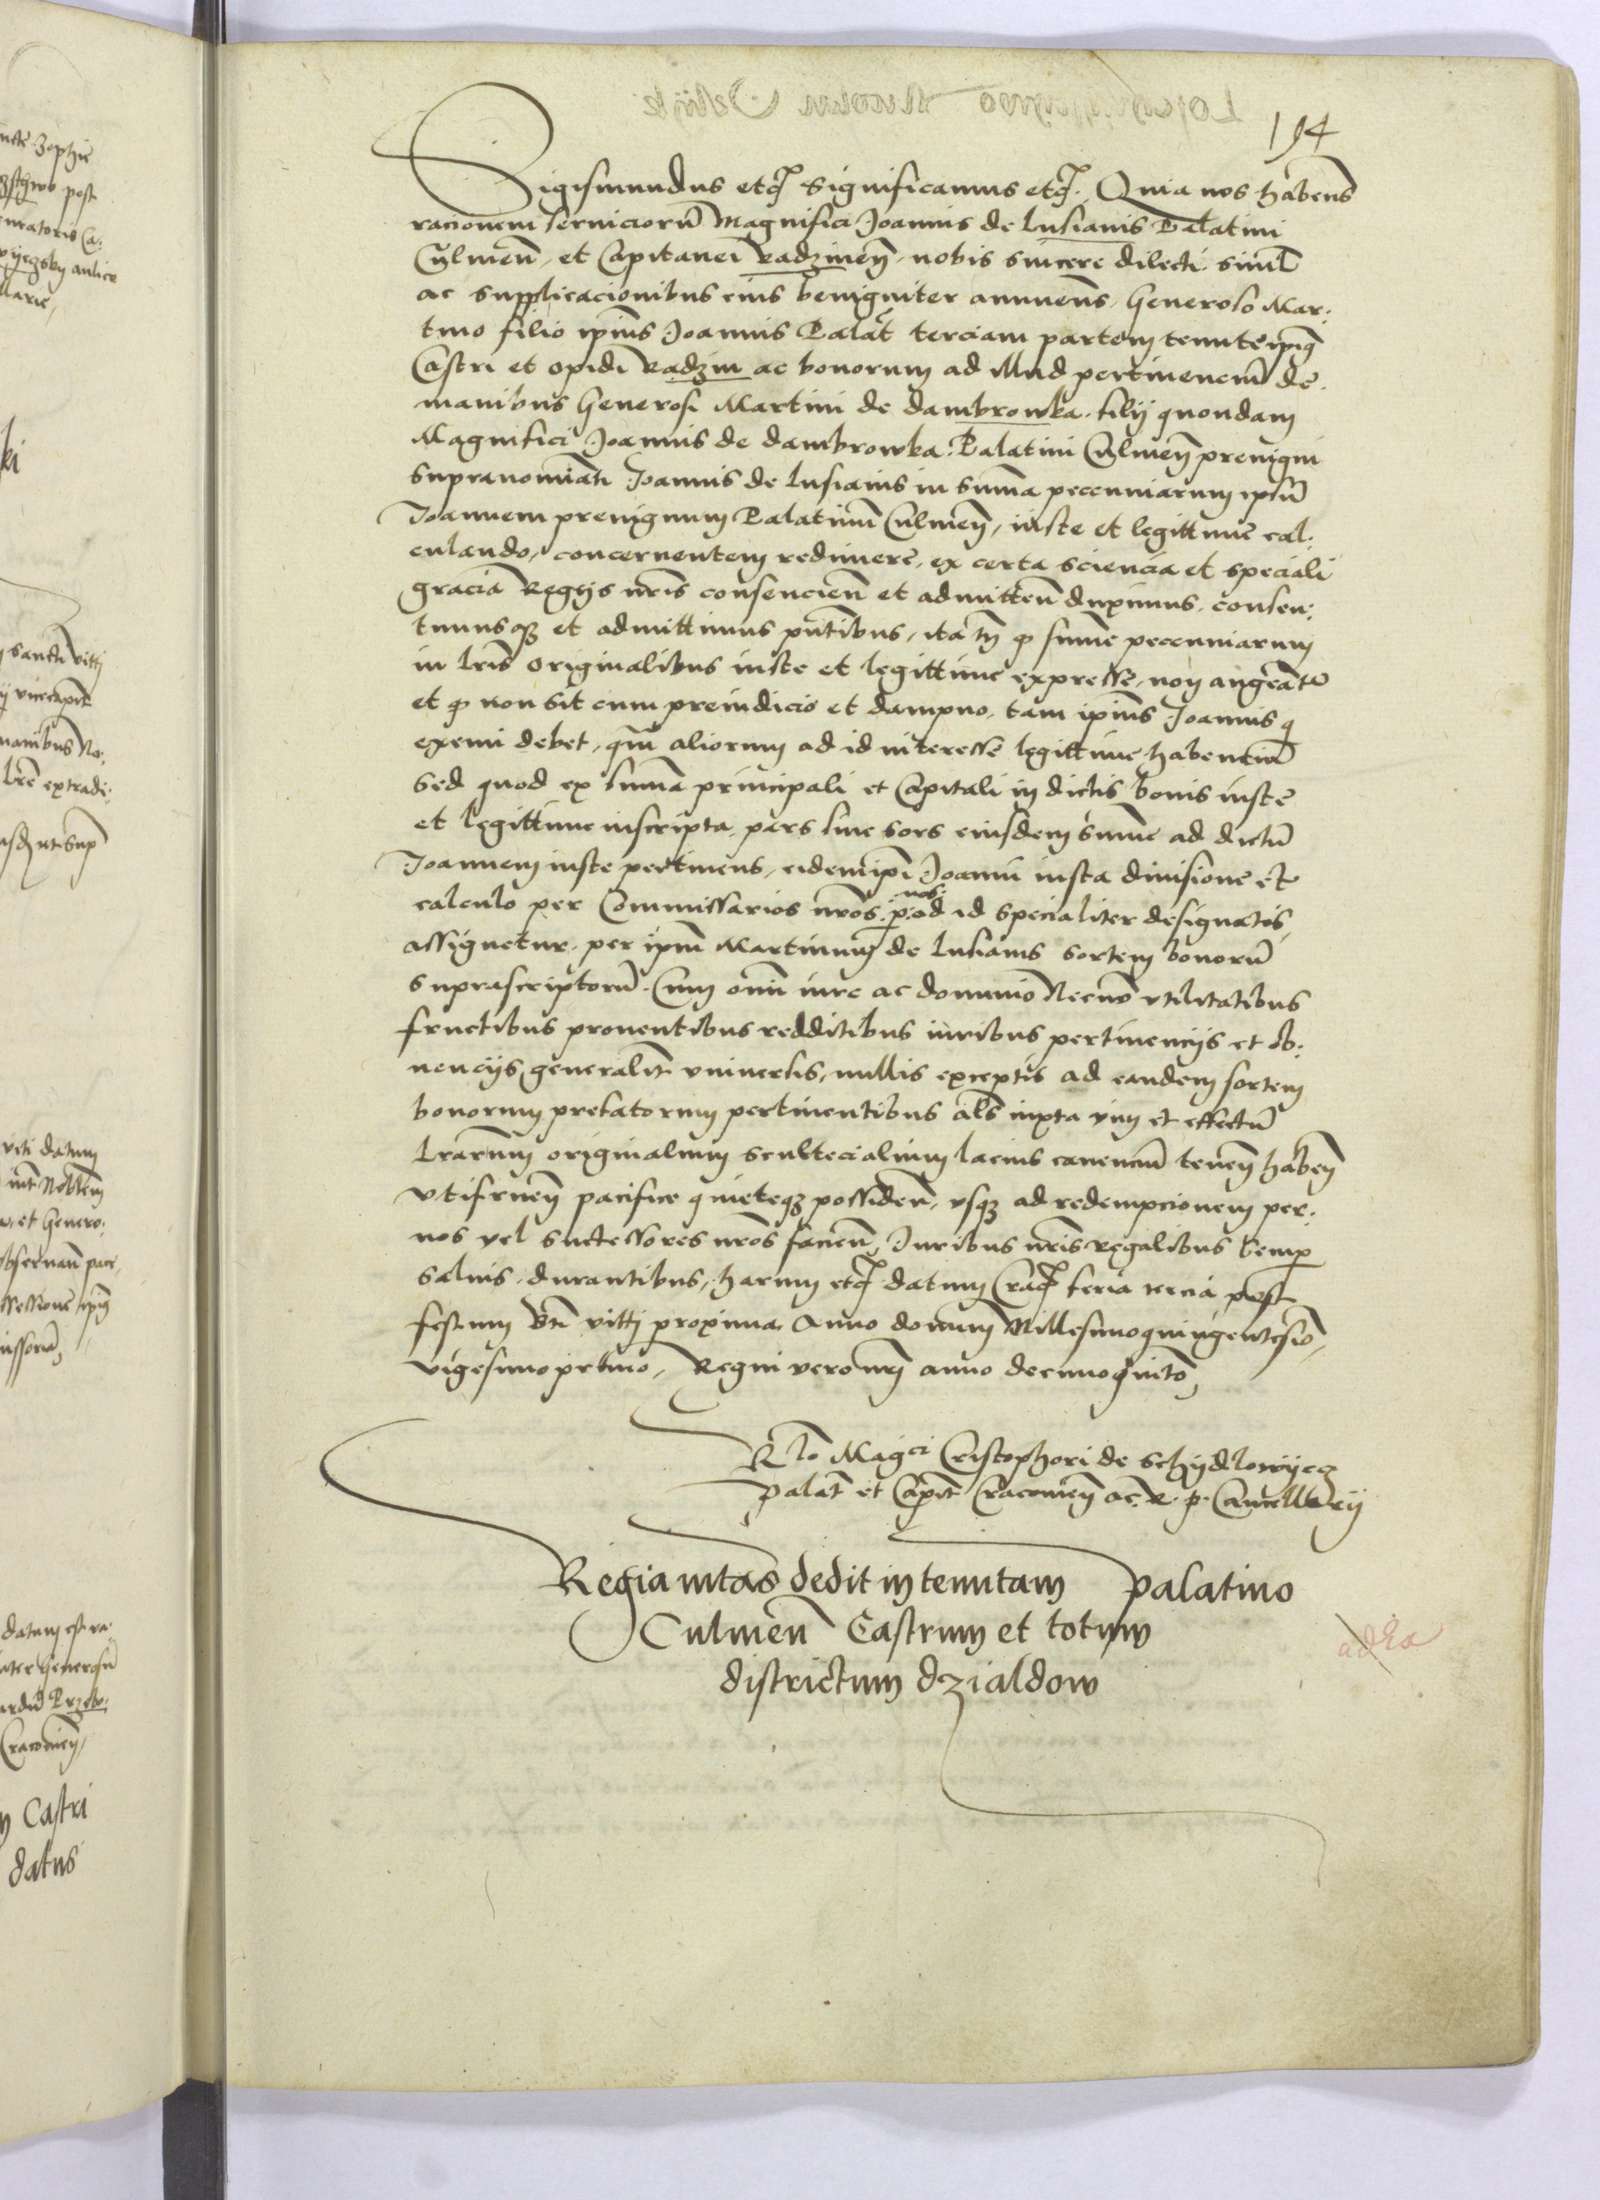 194
Sigismundus etc Significamus etc. Quia nos habens
racionem serviciorũ Magnifici Joannis de lusianis Palatini
Culmeñ, et Capitanei Radzineñ, nobis sincere dilecti, simul
ac supplicacionibus eius benigniter annuens, Generoso Mar:
tino filio ipius Joannis Palat terciam partem tenute ipius
Castri et opidi Radzin ac bonorum ad illud pertinencium de
manibus Generosi Martini de dambrowka filij quondam
Magnifici Joannis de dambrowka Palatini Culmeñ previgni
supranomiati Joannis de lusianis in summa pecuniarum ipsũ
Joannem prevignum Palatinũ Culmeñ, iuste et legittime cal:
culando, concernentem redimere, ex certa sciencia et speciali
gracia Regijs nris consencieñ et admitteñ duximus, consen:
timusqz et admittimus pñtibus, ita tñ q summe pecuniarum
in lris originalibus iuste et legittime expresse, non augeant
et q non sit cum preiudicio et dampno, tam ipius Joannis q
exemi debet, qm aliorum ad id interesse legittime habencium
Sed quod ex suma principali et Capitali in dictis bonis iuste
et legittime inscripta, pars sive sors eiusdem sume ad dictũ
Joannem iuste pertinens, eidem ipi Joanni iusta divisione et
calculo per Commissarios nros, p nos ad id specialiter designatos,
assignetur, per ipm Martinum de lusianis sortem bonorũ
suprascriptorũ. Cum omi iure ac dominio Necno utilitatibus
fructibus proventibus redditibus iuribus pertinencijs et ob:
vencijs generalit universis, nullis exceptis ad eandem sortem
bonorum prefatorum pertinentibus als iuxta vim et effectũ
lrarum originalium scultecialium lacius canencium teneñ habeñ
utifrueñ pacifice quieteqz possideñ, usqz ad redempcionem per
nos vel successores nros facieñ, Iuribus nris regalibus semp
salvis, durantibus, harum etc datum Crac feria tercia post
festum Bti vitti proxima, Anno domini Millesimoquingentesimo
vigesimoprimo, Regni vero nri anno decimoquinto,
Rlo Magci Cristophori de Schydlowyecz
palat et Capit Cracovieñ ac R. p. Cancellarij
Regia mtas dedit in tenutam palatino
Culmeñ Castrum et totum
districtum dzialdow